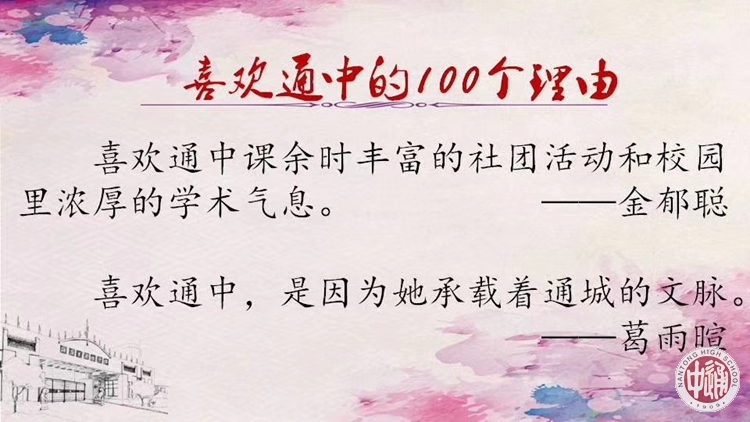 喜欢通中的100个理由
喜欢通中课余时丰富的社团活动和校园
里浓厚的学术气息。 ——金郁聪
喜欢通中，是因为她承载着通城的文脉。
——葛雨暄
NANTONG HIGH SCHOOL
通中
1909